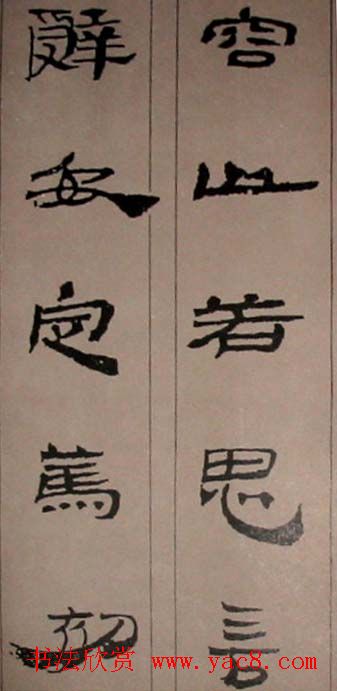 容止若思言
辭安定篤初
书法欣赏 www.yac8.com